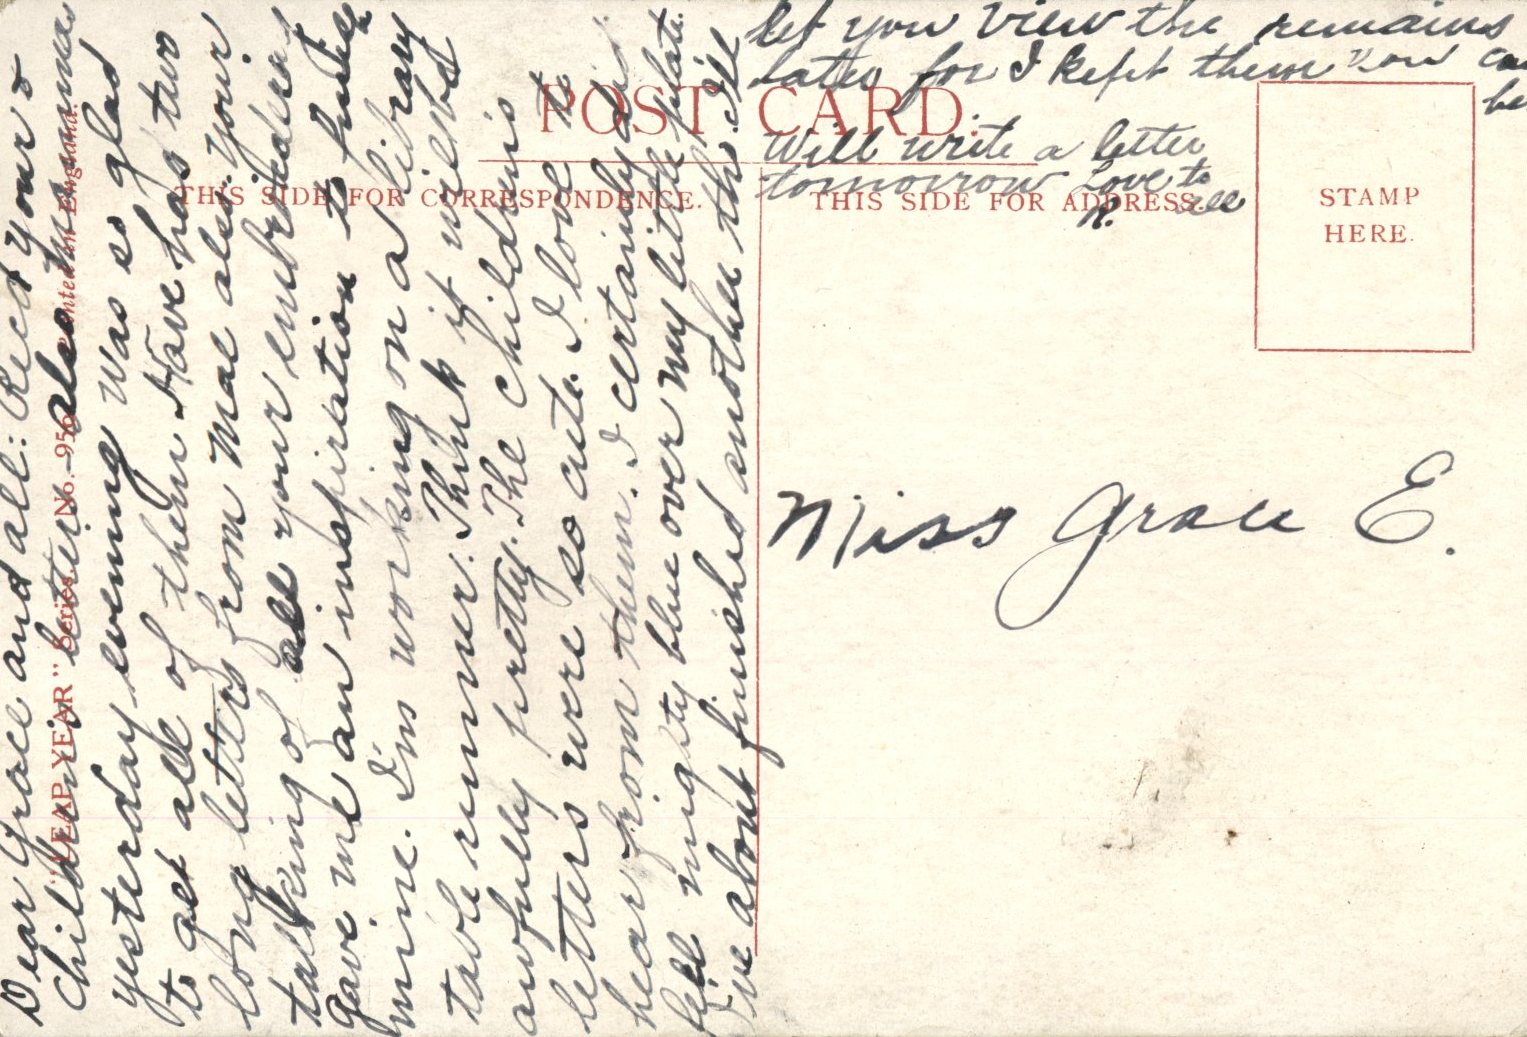 POST CARD.
THIS SIDE FOR CORRESPONDENCE.
THIS SIDE FOR ADDRESS.
STAMP
HERE.
"LEAP YEAR" Series. No. 956 Printed in England.
Dear Grace and all: Recd your &
children's letters also
yesterday evening was so glad
to get all of them Have has two
long letters from Mae also. Your
talking of all your embroidery
gave me an inspiration to finish
mine. I'm working on a library
table runner. Think it will be
awfully pretty. The children's
letters were so cute. I love to
hear from them. I certainly did
feel mighty blue over my little plate.
I've about finished another tho. I'll
let you view the remains
later for I kept them You can
be
Will write a letter
tomorrow Love to
all
R.
Miss Grace E.